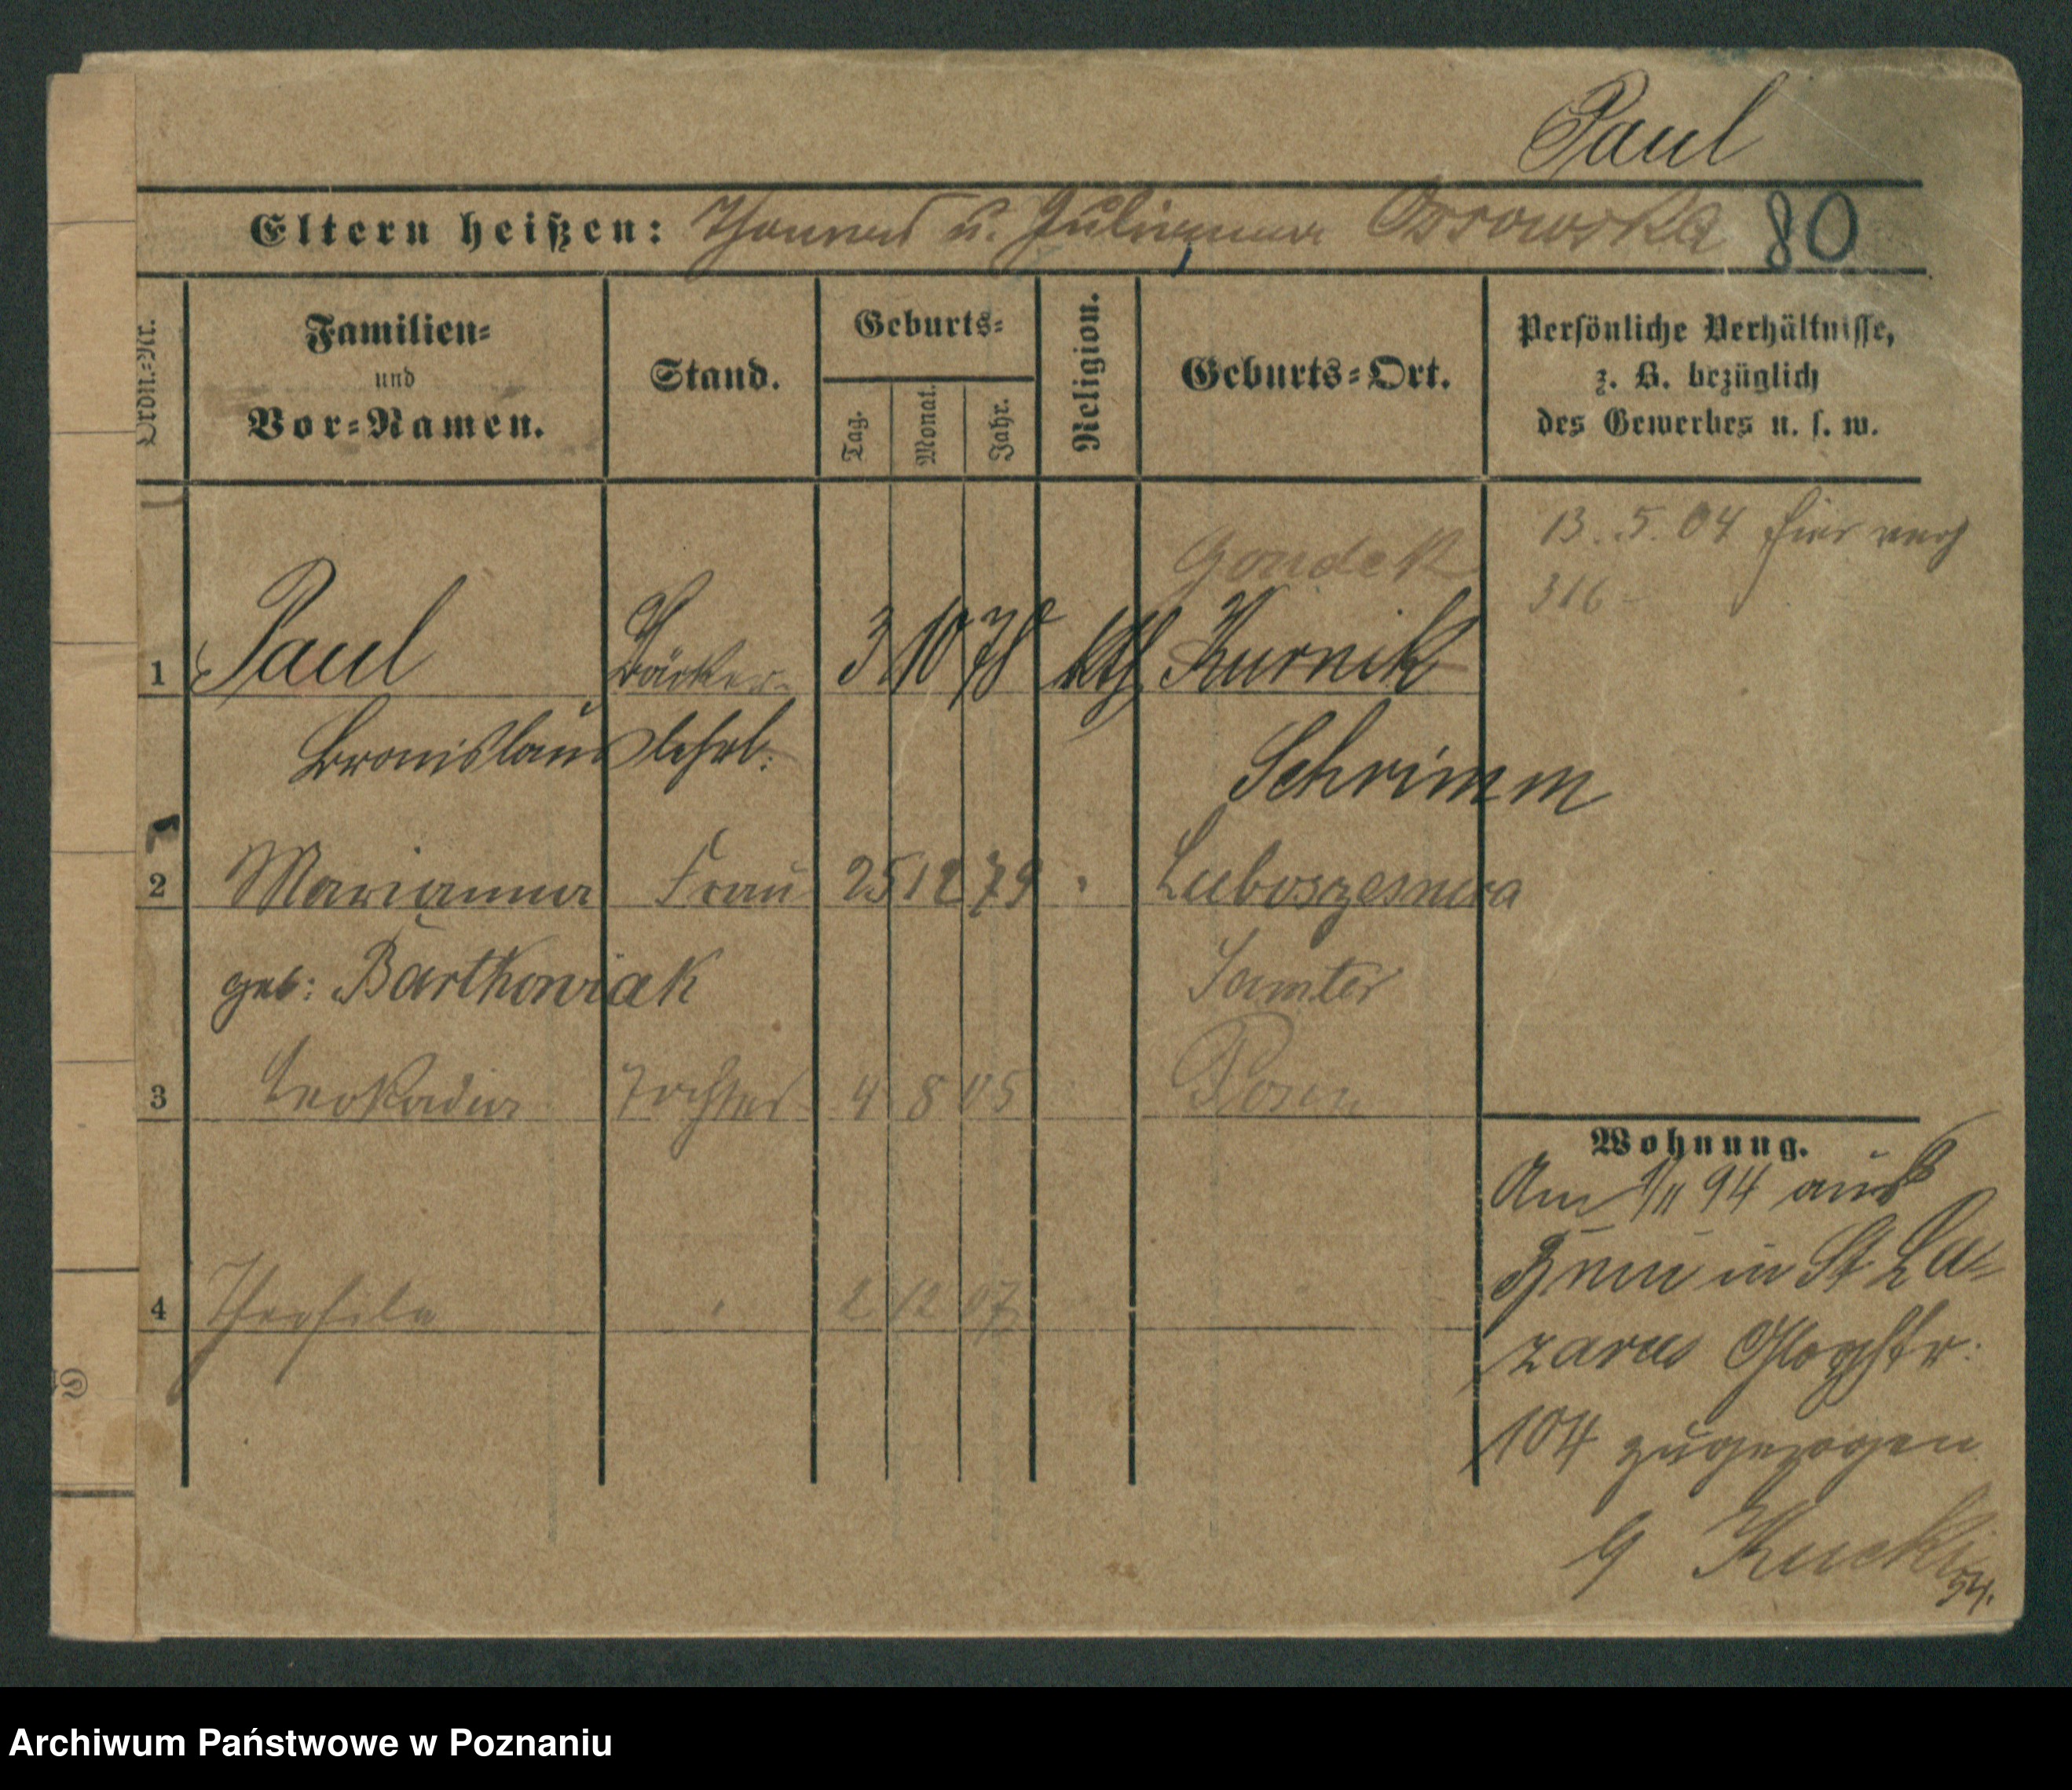 Paul
Eltern heißen: Thomas u. Julianna Ossowska 80
Ordn.-Nr.
Familien-
und
Vor-Namen.
Stand.
Geburts-
Tag.
Monat.
Jahr.
Religion.
Geburts-Ort.
Persönliche Verhältnisse,
z. B. bezüglich
des Gewerbes u. s. w.
13. 5. 04 hier
316
Gondek
1 Paul Bäcker- 3 10 78 kth Kurnik
Bronislaus lehrl. Schrimm
2 Marianna Frau 25 12 79 " Luboszesnica
geb: Bartkowiak Samter
3 Leokadia Tochter 4 8 05 Posen
4 Theofila " 2 12 07
Wohnung.
Am 1/11 94 aus
in St La-
zarus Glogstr.
104 zugezogen
9
Archiwum Państwowe w Poznaniu